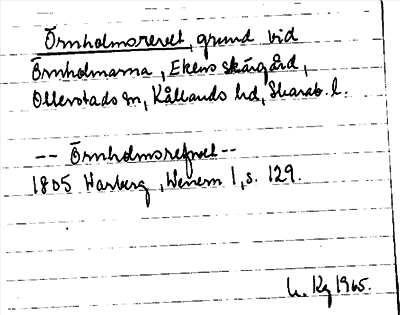 Örnholmsrevet, grund vid
Örnholmarna, Ekens skärgård,
Otterstads sn, Kållands hd, Skarab. l.
-- Örnholmsrefvet --
1805 Warberg, Wenern 1, s. 129.
1965.